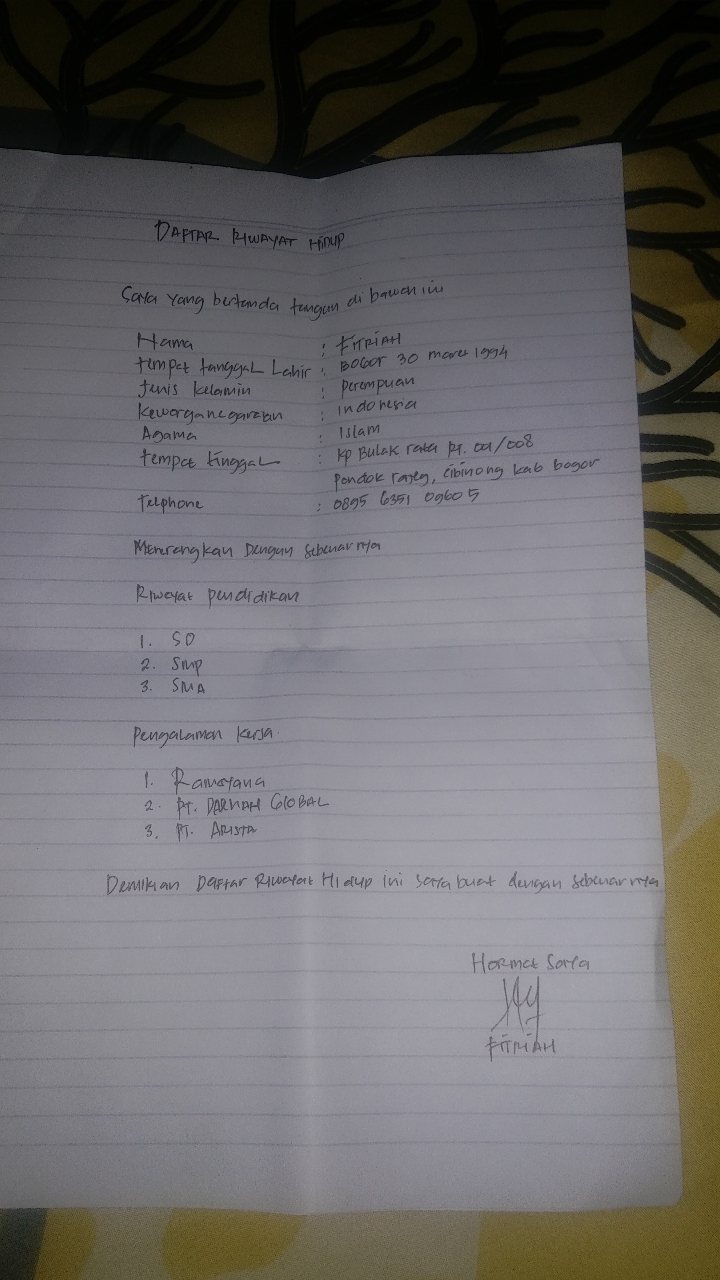 DAFTAR RIWAYAT HIDUP
Saya yang bertanda tangan di bawah ini
Nama : FITRIAH
tempat tanggal Lahir : BOGOR 30 maret 1994
Jenis kelamin : perempuan
Kewarganegaraan : indonesia
Agama : Islam
tempat tinggal : kp Bulak rata RT. 001/008
Pondok rajeg, cibinong kab bogor
Telphone : 0895 6351 09605
Menerangkan Dengan sebenarnya
Riwayat pendidikan
1. SD
2. SMP
3. SMA
Pengalaman kerja
1. Ramayana
2. PT. DARMAH GLOBAL
3. PT. ARISTA
Demikian Daftar Riwayat Hidup ini saya buat dengan sebenarnya
Hormat Saya
FITRIAH